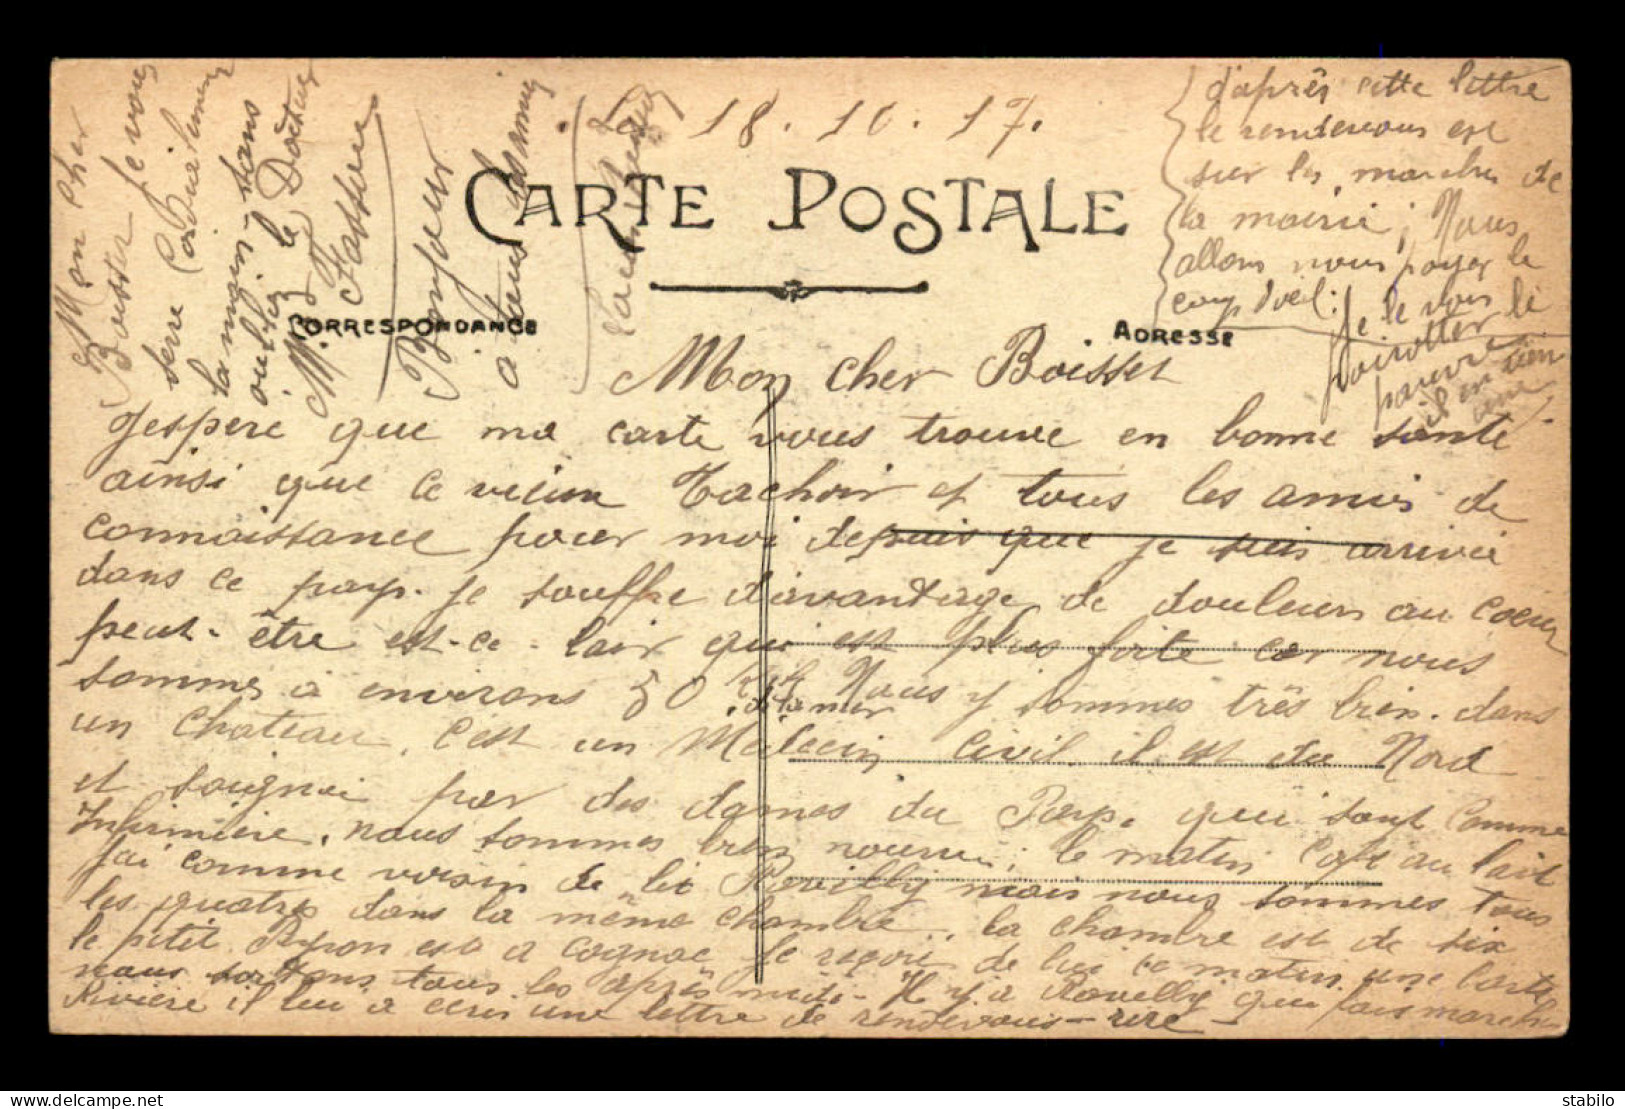 Le 18.10.17.
CARTE POSTALE
CORRESPONDANCE
ADRESSE
Mon cher Boisset
J'espere que ma carte vous trouve en bonne sante
ainsi que le vieux Tachoir et tous les amis de
connaissance pour moi depuis que je suis arrivé
dans ce pays. je souffre d'avantage de douleurs au coeur
peut-être est-ce-lair qui est plus forte car nous
sommes à environs 50 Kil Nous y sommes très bien. dans
de la mer
un Chateau. C'est un Médecin Civil. il est du Nord
et soigné par des dames du Pays. qui sont Comme
Infirmière. nous sommes bien nourri; le matin Café au lait
J'ai comme voisin de lit Rouilly mais nous sommes tous
les quatre dans la même chambre.. la chambre est de six
le petit Pyron est a Cognac je reçois de lui ce matin une Carte
nous sortons tous les après midi. Il y a Rouilly qui fais
Rivière il lui a ecris une lettre de rendevous-rire-
d'après cette lettre
le rendevous est
sur les marches de
la mairie; Nous
allons nous payer le
coup d'oeil.
Je le vois
le
pauvre
il en
Mon cher
Boisset je vous
serre Cordialement
la main-sans
oublier le Docteur
M. Fassieu
Bonjour
a tous les amis